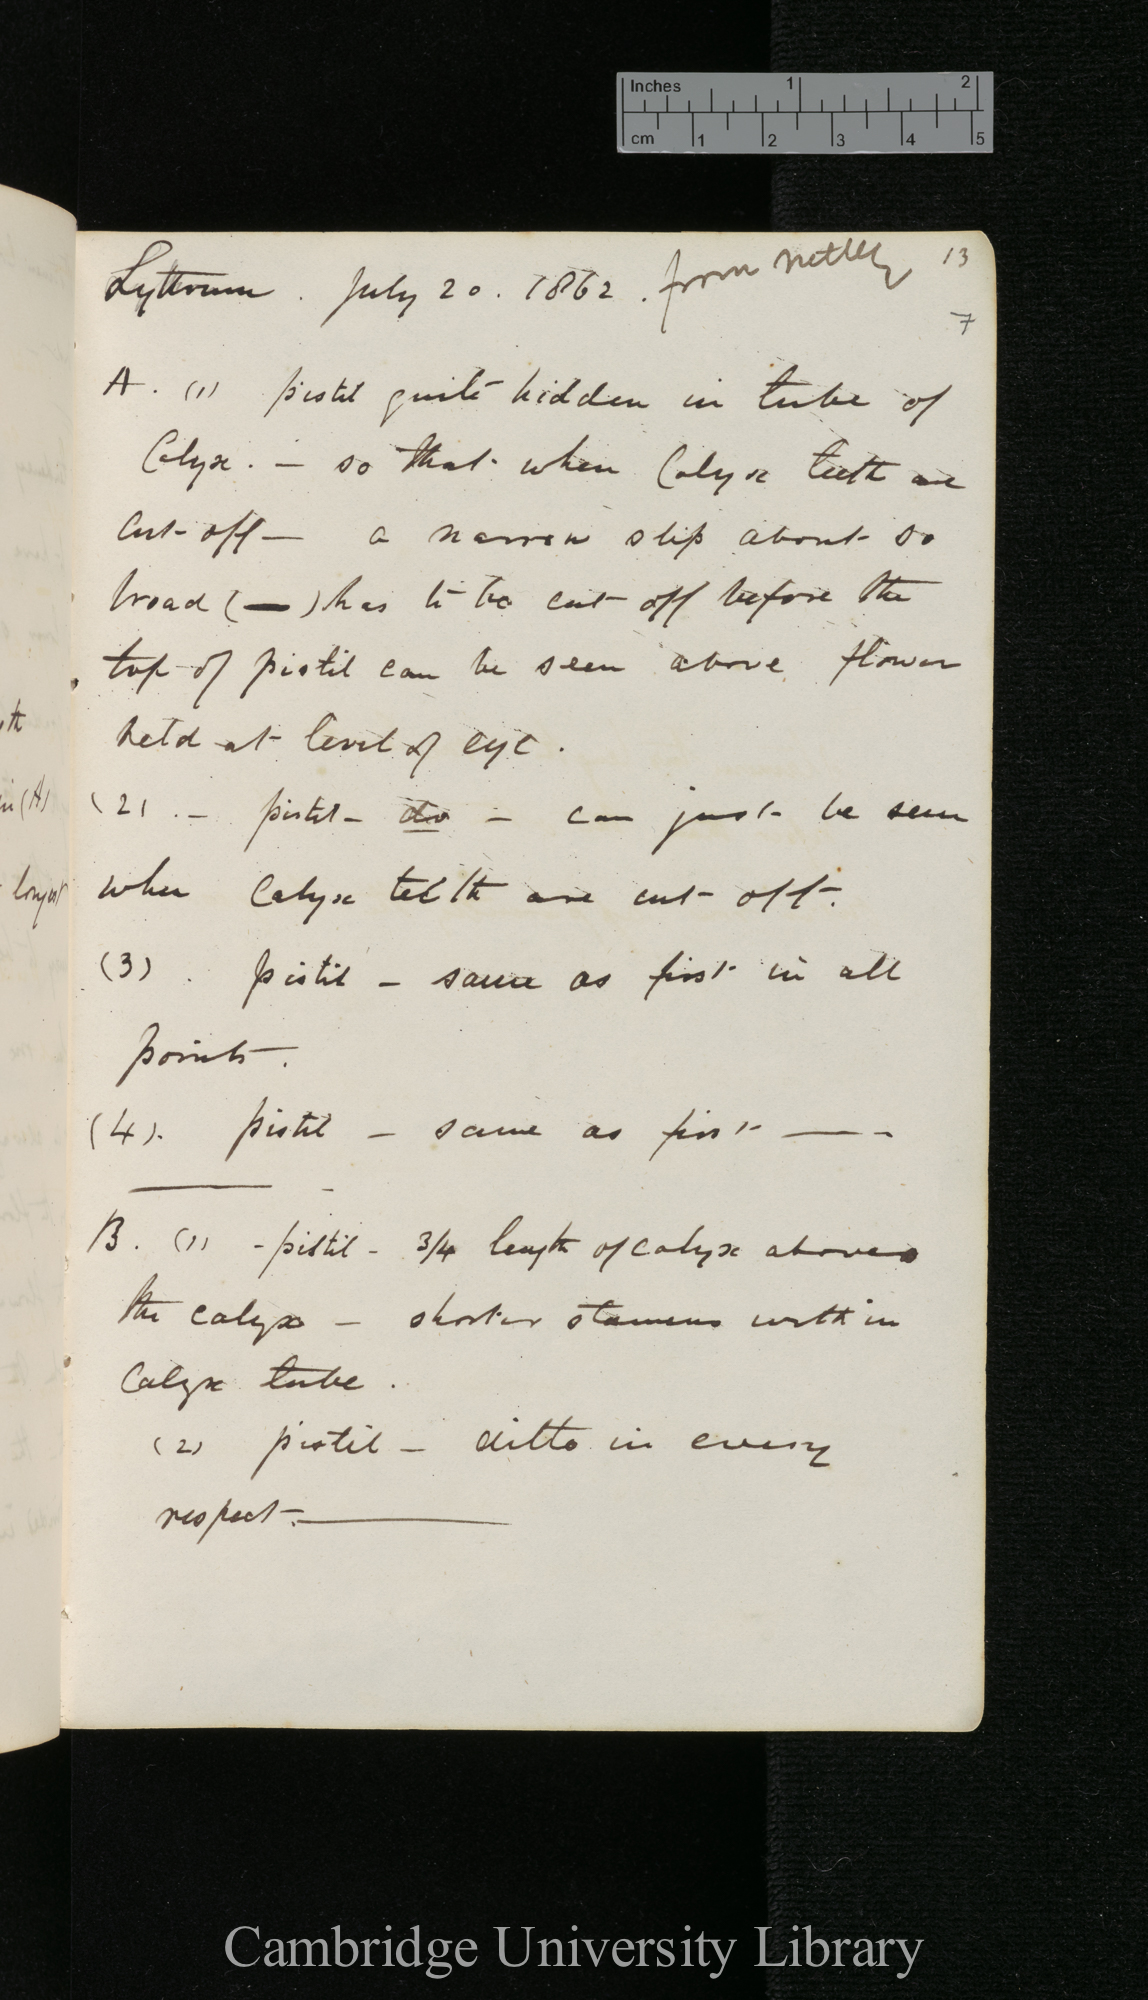 Inches 1 2
cm 1 2 3 4 5
Lythrum . July 20 . 1862 . from Netley 13
7
A . (1) pistil quite hidden in tube of
Calyx . — so that when Calyx teeth are
cut off — a narrow slip about so
broad (—) has to be cut off before the
top of pistil can be seen above flower
held at level of eye .
(2) . — pistil — do — can just be seen
when Calyx teeth are cut off .
(3) . pistil — same as first in all
points .
(4) . pistil — same as first —— -
B . (1) - pistil - 3/4 length of calyx above
the calyx — shorter stamens within
Calyx tube .
(2) pistil — ditto in every
respect . ———
th
in (A)
longest
Cambridge University Library